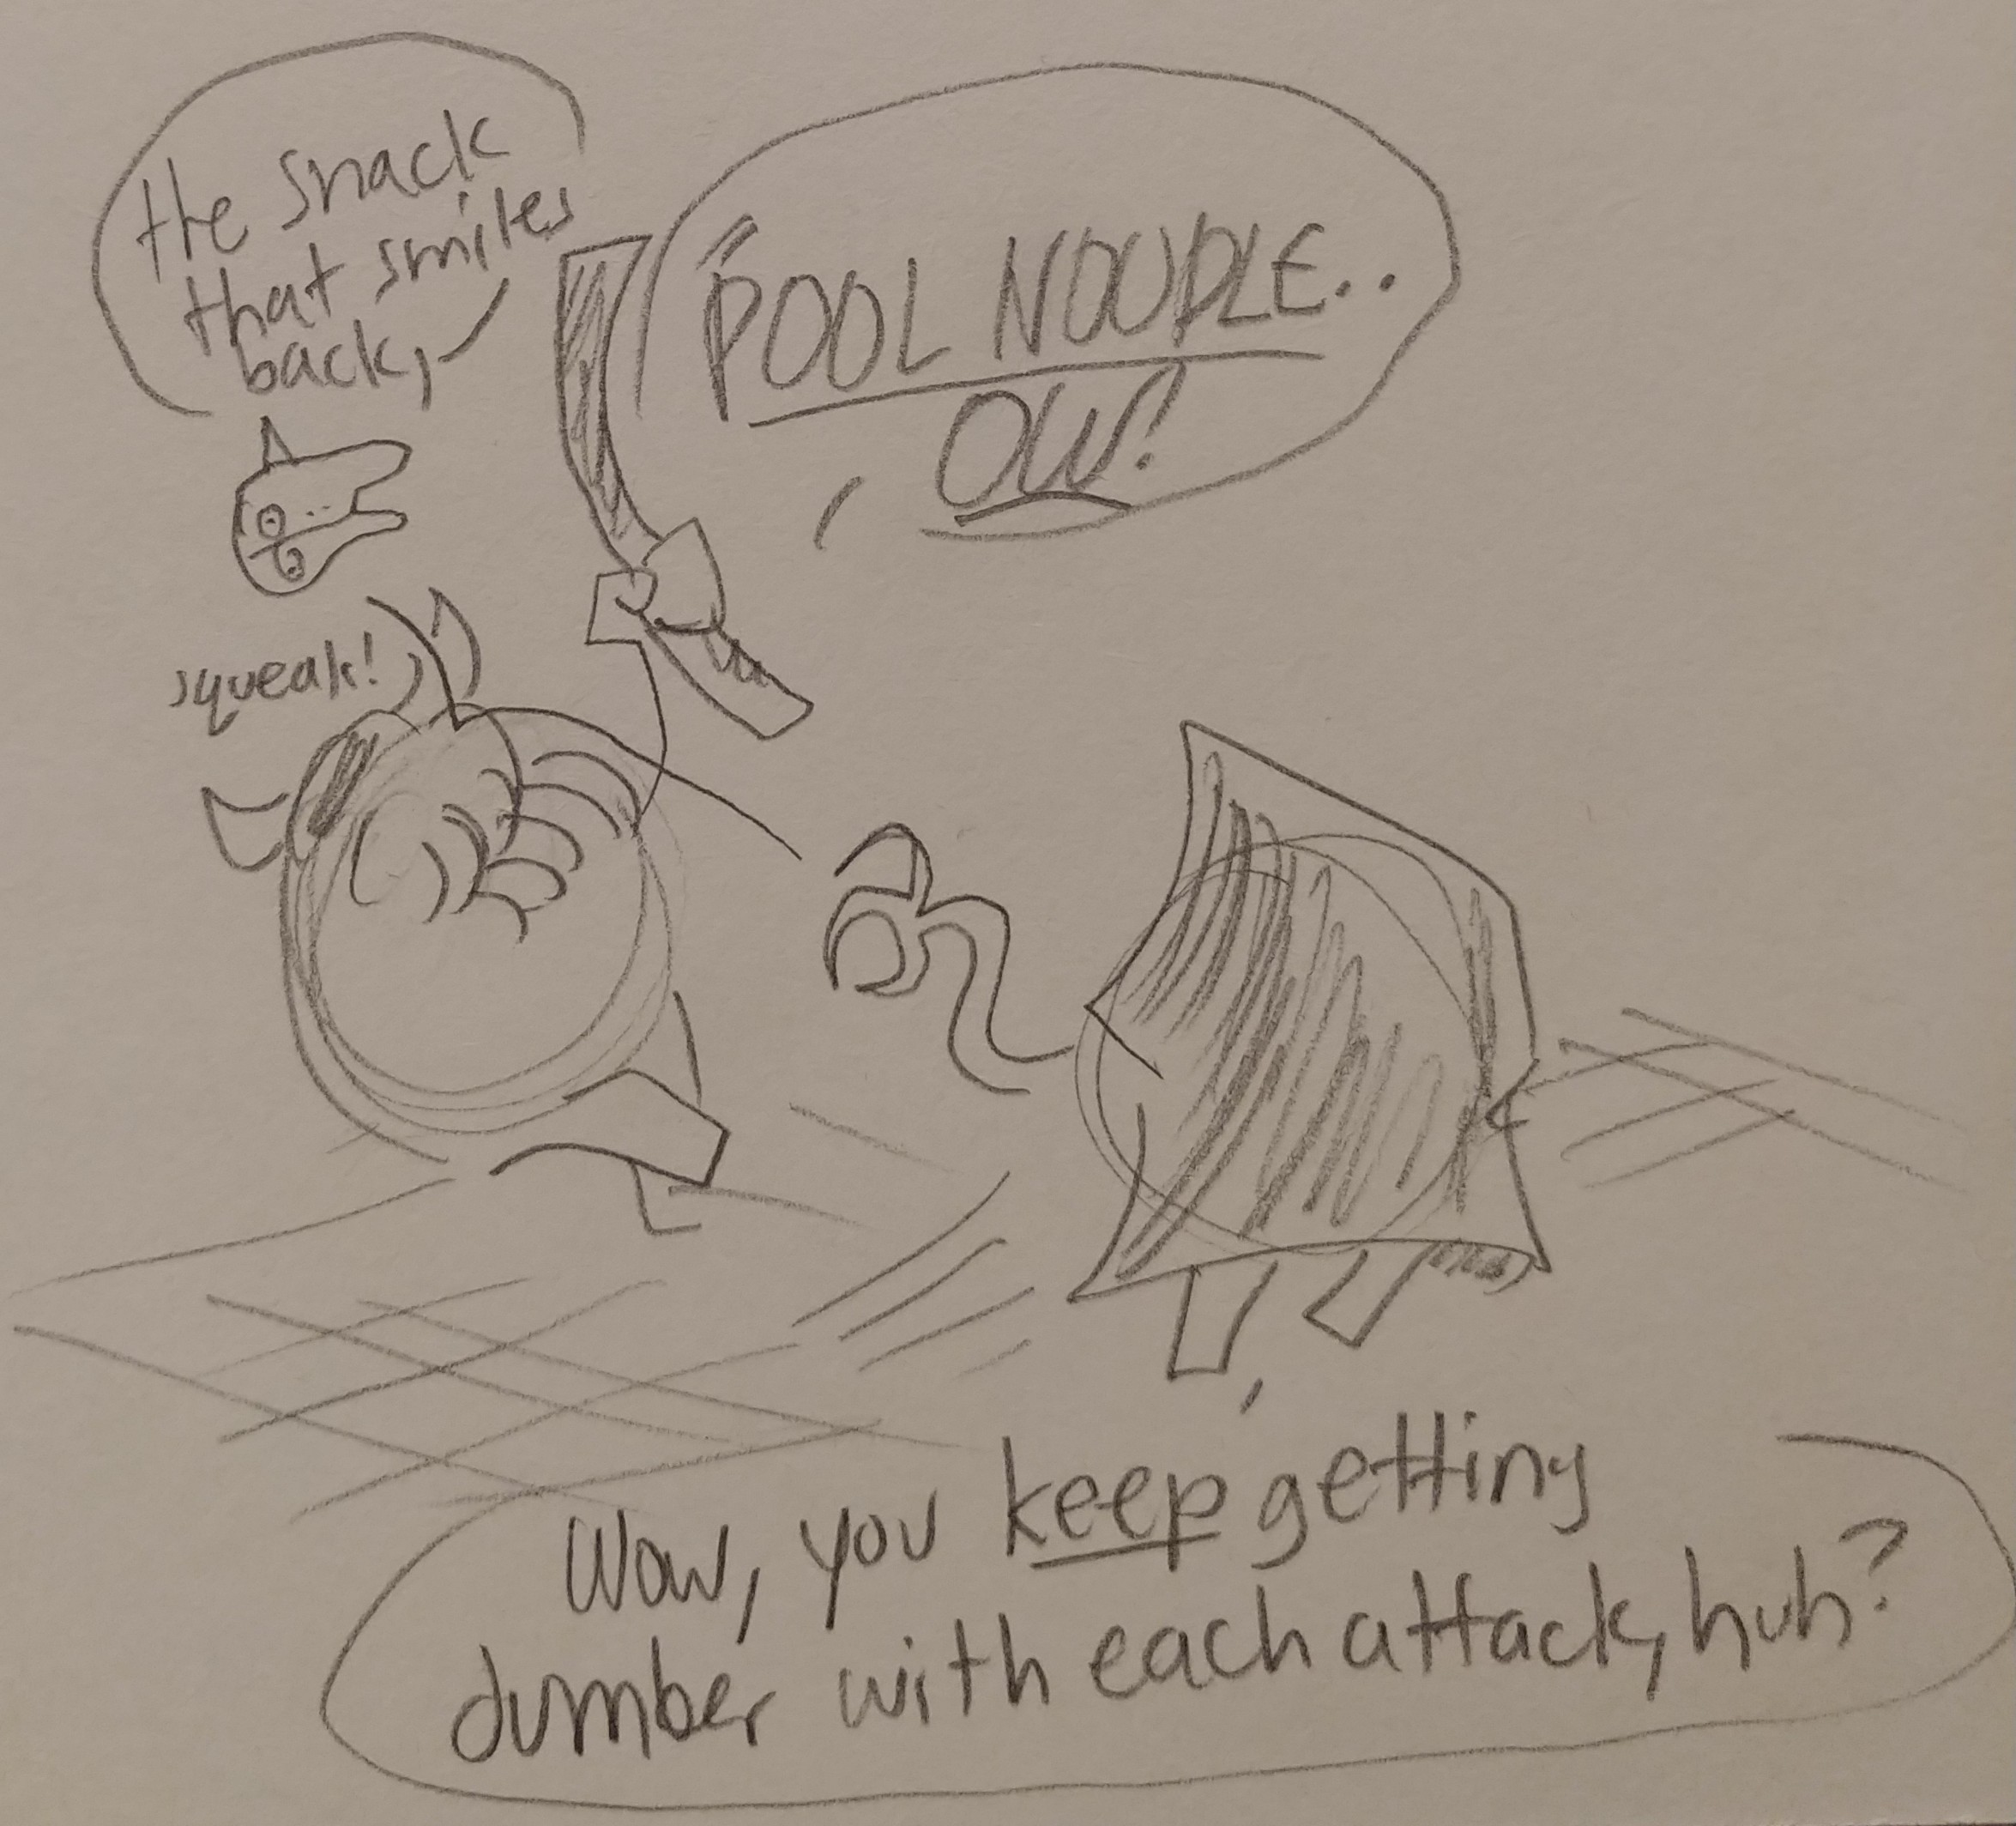 the snack
that smiles
back,
"POOL NOUDLE..
OW!
squeak!
Wow, you keep getting
dumber with each attack, huh?